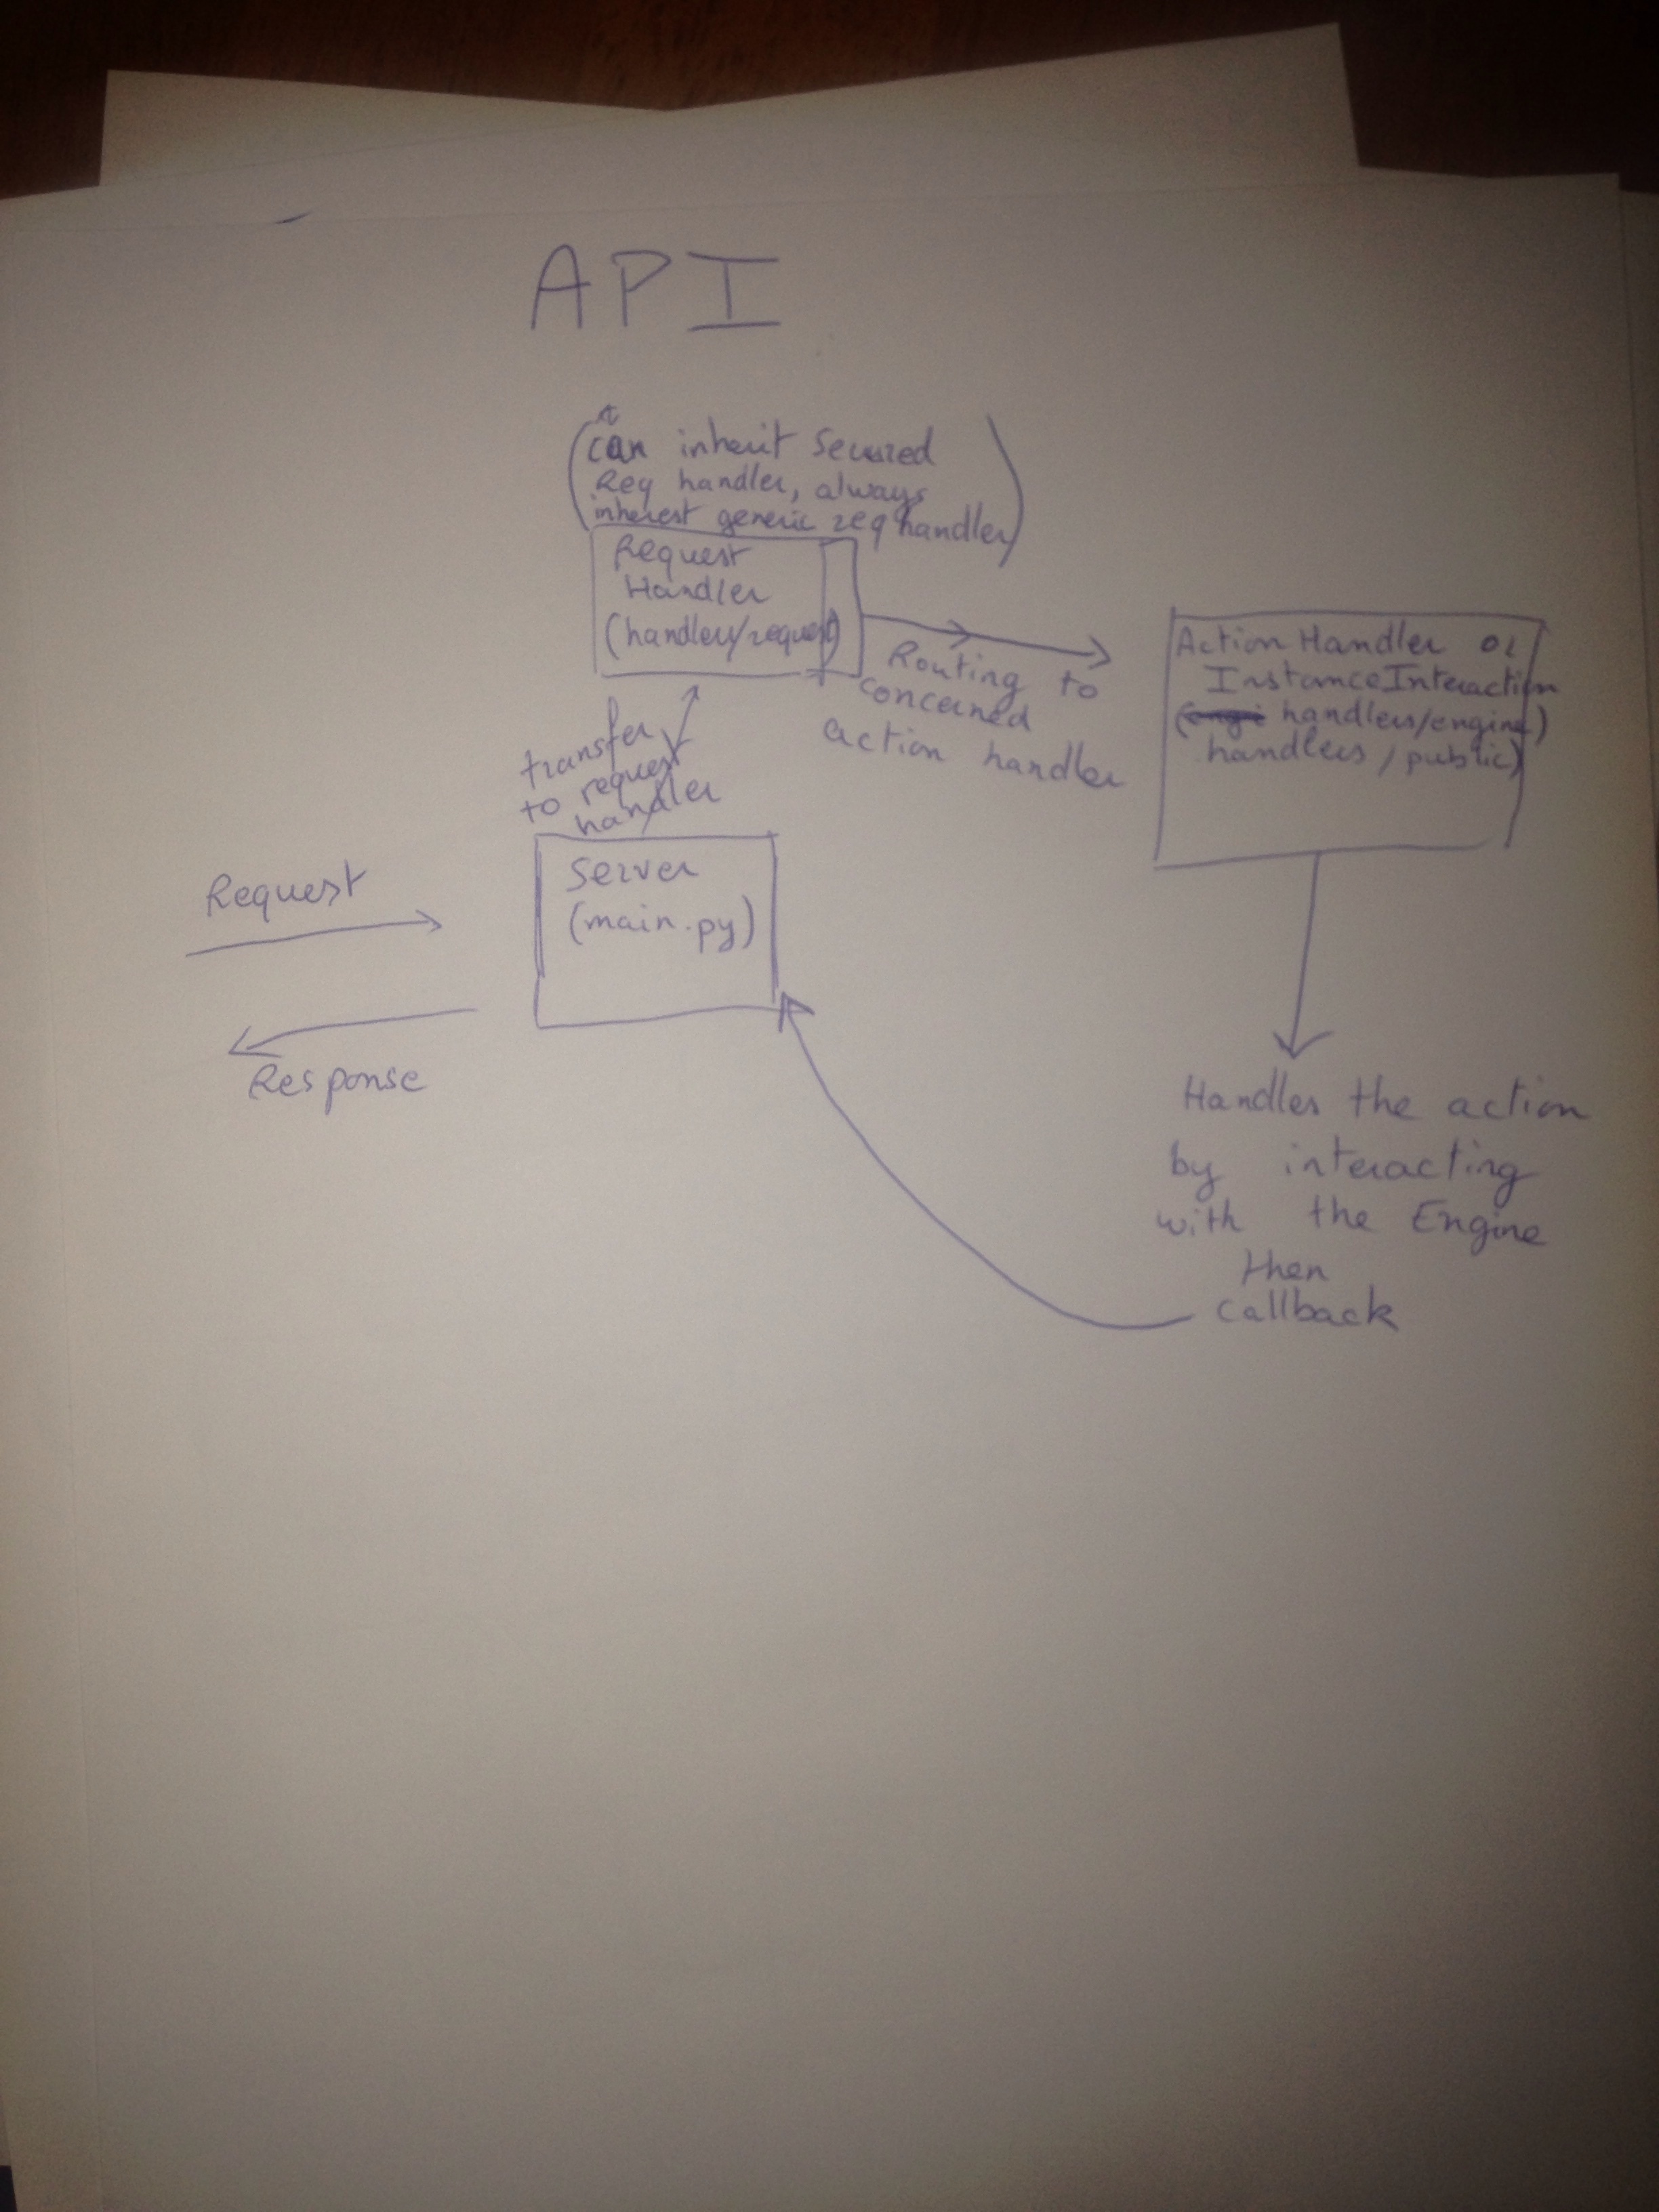 API
(can inherit secured
Req handler, always
inherest generic req handler)
Request
Handler
(handlers/request)
Routing to
concerned
action handler
Action Handler or
InstanceInteraction
(handlers/engine)
handlers/public)
transfer
to request
handler
Server
(main.py)
Request
Response
Handles the action
by interacting
with the Engine
then
callback